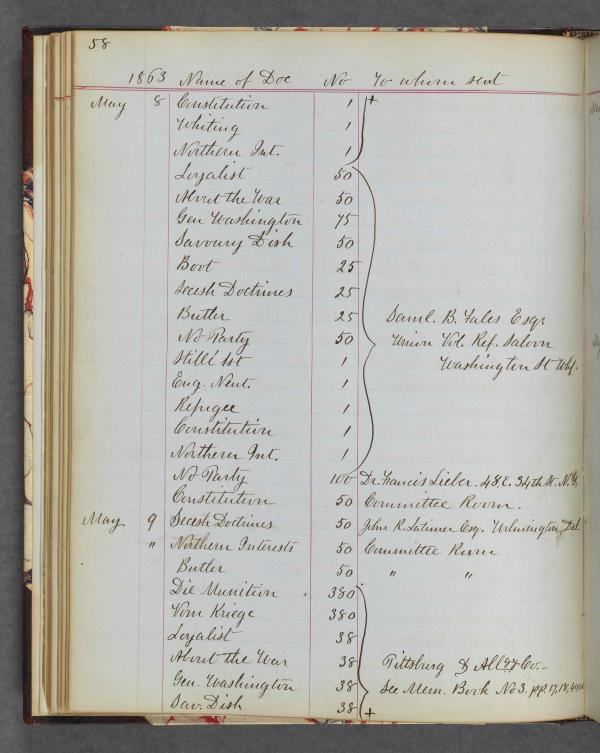 58
1863 Name of Doc No To whom sent
May 8 Constitution 1
Whiting 1
Northern Int. 1
Loyalist 50
About the War 50
Gen Washington 75
Savoury Dish 50
Boot 25
Secesh Doctrines 25
Butler 25 Saml. B. Fales Esqr
No Party 50 Union Vol. Ref. Saloon
Stillé 1st 1 Washington St Whf.
Eng. Neut. 1
Refugee 1
Constitution 1
Northern Int. 1
No Party 100 Dr. Francis Lieber. 48 E. 34th St. N.Y.
Constitution 50 Committee Room.
May 9 Secesh Doctrines 50 John R. Latimer Esq. Wilmington, Del
" Northern Interests 50 Committee Room
Butler 50 " "
Die Munition 380
Vom Kriege 380
Loyalist 38
About the War 38 Pittsburg & Allgy Co.
Gen. Washington 38 See Mem. Book No 3. pp. 17, 18,
Sav. Dish 38